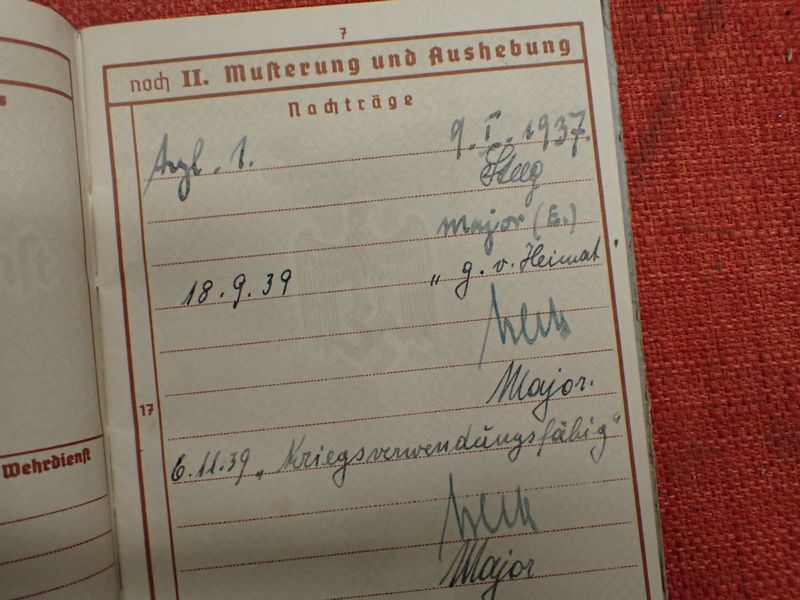 7
noch II. Musterung und Aushebung
Nachträge
1. 9. I. 1937.
Major (E.)
18.9.39 „g. v. Heimat"
Major.
17
6.11.39 „Kriegsverwendungsfähig"
Wehrdienst
Major